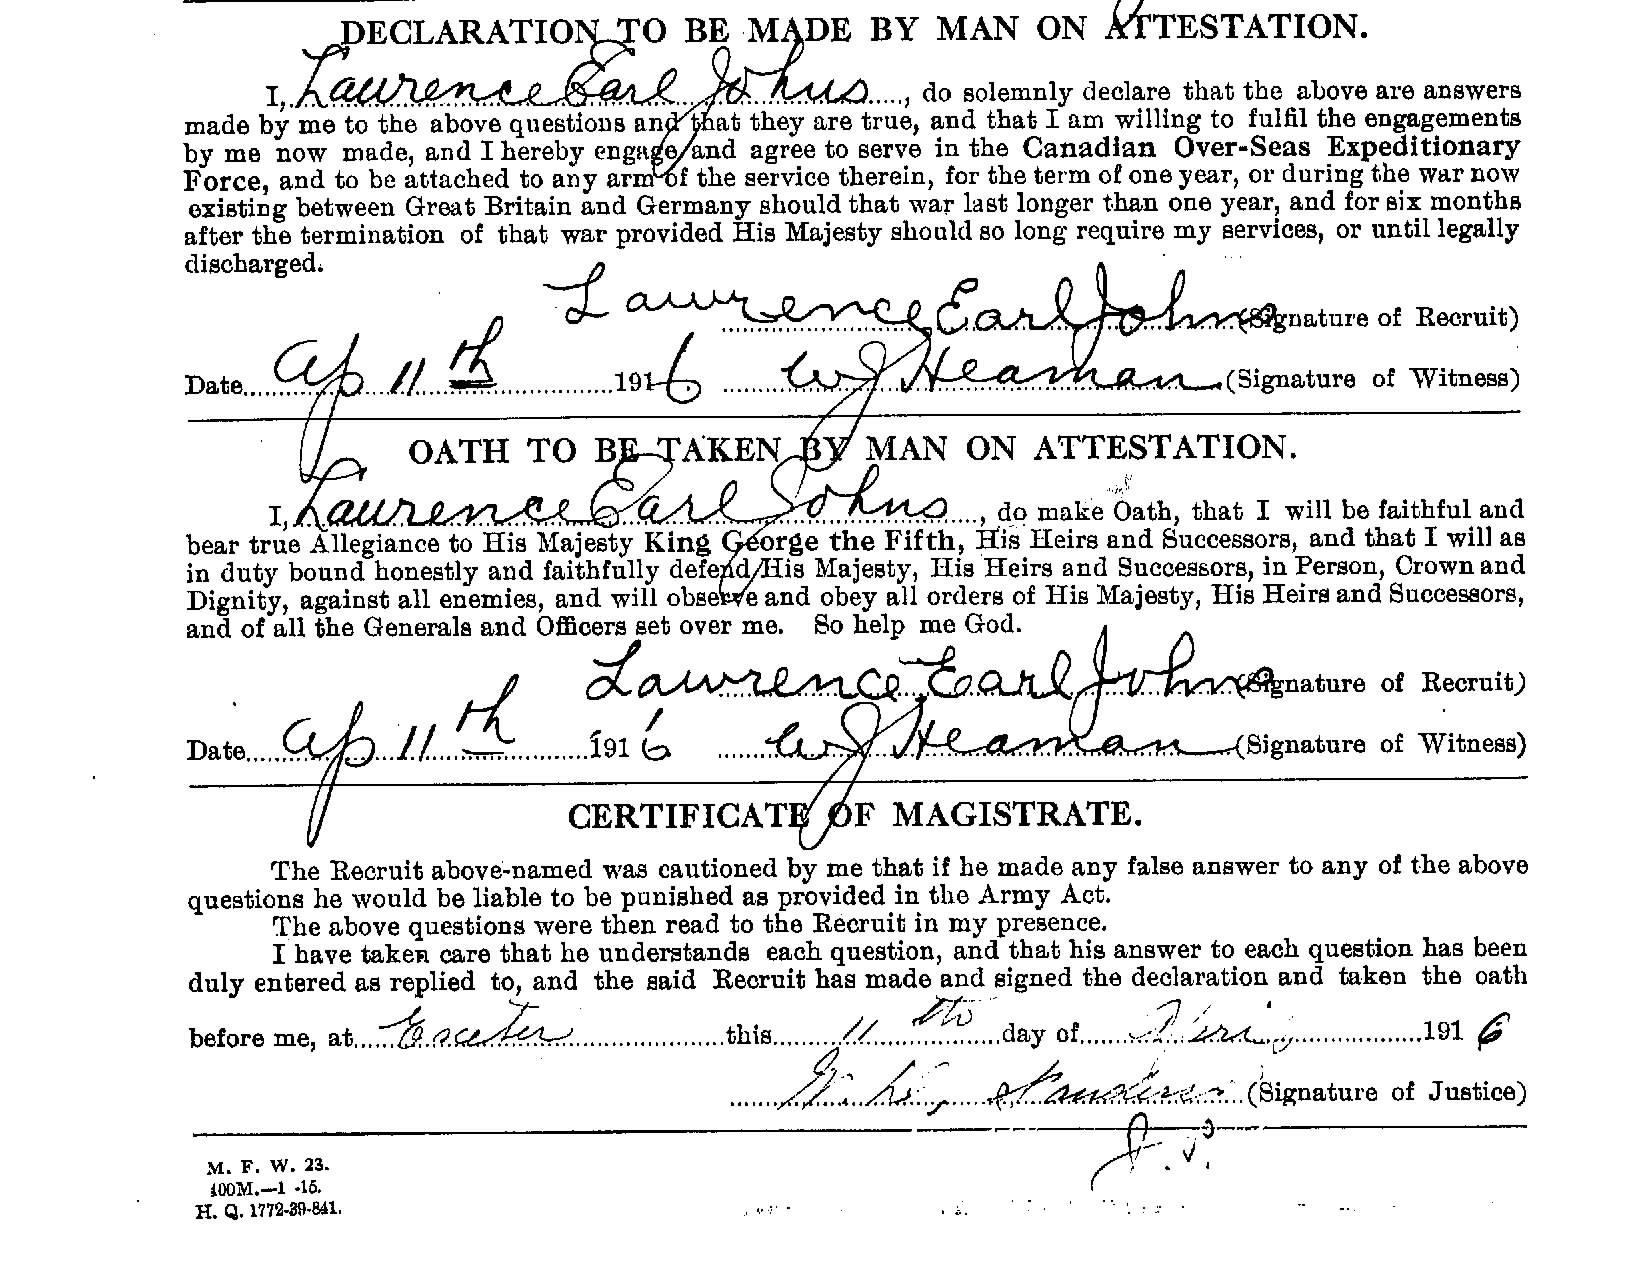 DECLARATION TO BE MADE BY MAN ON ATTESTATION.
I, Laurence Earl Johns, do solemnly declare that the above are answers
made by me to the above questions and that they are true, and that I am willing to fulfil the engagements
by me now made, and I hereby engage and agree to serve in the Canadian Over-Seas Expeditionary
Force, and to be attached to any arm of the service therein, for the term of one year, or during the war now
existing between Great Britain and Germany should that war last longer than one year, and for six months
after the termination of that war provided His Majesty should so long require my services, or until legally
discharged.
Lawrence Earl Johns (Signature of Recruit)
Date Ap 11th 1916 W J Heaman (Signature of Witness)
OATH TO BE TAKEN BY MAN ON ATTESTATION.
I, Laurence Earl Johns, do make Oath, that I will be faithful and
bear true Allegiance to His Majesty King George the Fifth, His Heirs and Successors, and that I will as
in duty bound honestly and faithfully defend His Majesty, His Heirs and Successors, in Person, Crown and
Dignity, against all enemies, and will observe and obey all orders of His Majesty, His Heirs and Successors,
and of all the Generals and Officers set over me. So help me God.
Lawrence Earl Johns (Signature of Recruit)
Date Ap 11th 1916 W J Heaman (Signature of Witness)
CERTIFICATE OF MAGISTRATE.
The Recruit above-named was cautioned by me that if he made any false answer to any of the above
questions he would be liable to be punished as provided in the Army Act.
The above questions were then read to the Recruit in my presence.
I have taken care that he understands each question, and that his answer to each question has been
duly entered as replied to, and the said Recruit has made and signed the declaration and taken the oath
before me, at Exeter this 11th day of April 1916
(Signature of Justice)
J.P.
M. F. W. 23.
400M.—1-15.
H. Q. 1772-39-841.